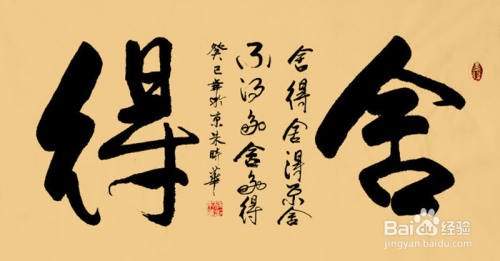 舍
得
舍得舍得不舍
不得能舍能得
癸巳年於京朱華
Bai du 经验
jingyan.baidu.com